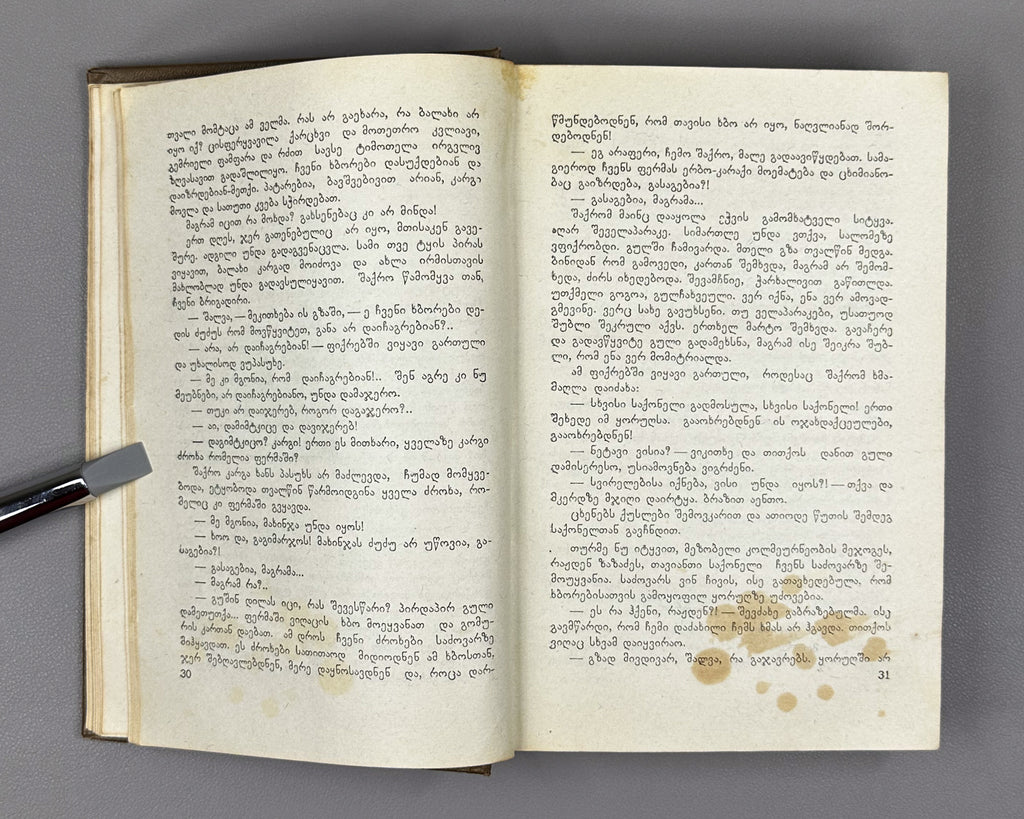 თვალი მომტაცა ამ ველმა. რას არ გაეხარა, რა ბალახი არ
იყო იქ? ცისფერყვავილა ქარცხვი და მოთეთრო კვლიავი,
გემრიელი ფამფარა და რძით სავსე ტიმოთელა ირგვლივ
ზღვასავით გადაშლილიყო. ჩვენი ხბორები დასუქდებიან და
დაიზრდებიან-მეთქი. პატარებია, ბავშვებივით არიან, კარგი
მოვლა და სათუთი კვება სჭირდებათ.
მაგრამ იცით რა მოხდა? გახსენებაც კი არ მინდა!
ერთ დღეს, ჯერ გათენებულიც არ იყო, მთისაკენ გავე-
შურე. ადგილი უნდა გადაგვენაცვლა. სამი თვე ტყის პირას
ვიყავით, ბალახი კარგად მოიძოვა და ახლა ირმისთავის
მახლობლად უნდა გადავსულიყავით. შაქრო წამომყვა თან,
ჩვენი ბრიგადირი.
— შალვა, — მეკითხება ის გზაში, — ე ჩვენი ხბორები დე-
დის ძუძუს რომ მოვწყვიტეთ, განა არ დაიჩაგრებიან?..
— არა, არ დაიჩაგრებიან! — ფიქრებში ვიყავი გართული
და უხალისოდ ვუპასუხე.
— მე კი მგონია, რომ დაიჩაგრებიან!.. შენ აგრე კი ნუ
მეუბნები, არ დაიჩაგრებიანო, უნდა დამაჯერო.
— თუკი არ დაიჯერებ, როგორ დაგაჯერო?..
— აი, დამიმტკიცე და დავიჯერებ!
— დაგიმტკიცო? კარგი! ერთი ეს მითხარი, ყველაზე კარგი
ძროხა რომელია ფერმაში?
შაქრო კარგა ხანს პასუხს არ მაძლევდა, ჩუმად მომყვე-
ბოდა, ეტყობოდა თვალწინ წარმოიდგინა ყველა ძროხა, რო-
მელიც კი ფერმაში გვყავდა.
— მე მგონია, მახინჯა უნდა იყოს!
— ხოო და, გაგიმარჯოს! მახინჯას ძუძუ არ უწოვია, გა-
საგებია?!
— გასაგებია, მაგრამა...
— მაგრამ რა?..
— გუშინ დილას იცი, რას შევესწარი? პირდაპირ გული
დამეთუთქა... ფერმაში ვიღაცის ხბო მოეყვანათ და გომუ-
რის კართან დაებათ. ამ დროს ჩვენი ძროხები საძოვარზე
მიჰყავდათ. ეს ძროხები სათითაოდ მიდიოდნენ ამ ხბოსთან,
ჯერ შებღავლებდნენ, მერე დაყნოსავდნენ და, როცა დარ-
30
წმუნდებოდნენ, რომ თავისი ხბო არ იყო, ნაღვლიანად შორ-
დებოდნენ!
— ეგ არაფერი, ჩემო შაქრო, მალე გადაავიწყდებათ. სამა-
გიეროდ ჩვენს ფერმას ერბო-კარაქი მოემატება და ცხიმიანო-
ბაც გაიზრდება, გასაგებია?!
— გასაგებია, მაგრამა...
შაქრომ მაინც დააყოლა ეჭვის გამომხატველი სიტყვა.
აღარ შეველაპარაკე. სიმართლე უნდა ვთქვა, სალომეზე
ვფიქრობდი. გულში ჩამივარდა. მთელი გზა თვალწინ მედგა.
ბინიდან რომ გამოვედი, კართან შემხვდა, მაგრამ არ შემომ-
ხედა, ძირს იხედებოდა. შევამჩნიე, ჭარხალივით გაწითლდა.
უთქმელი გოგოა, გულჩახვეული. ვერ იქნა, ენა ვერ ამოვად-
გმევინე. ვერც სახე გავუხსენი. თუ ველაპარაკები, უსათუოდ
შუბლი შეკრული აქვს. ერთხელ მარტო შემხვდა. გავაჩერე
და გადავწყვიტე გული გადამეხსნა, მაგრამ ისე შეიკრა შუბ-
ლი, რომ ენა ვერ მომიტრიალდა.
ამ ფიქრებში ვიყავი გართული, როდესაც შაქრომ ხმა-
მაღლა დაიძახა:
— სხვისი საქონელი გადმოსულა, სხვისი საქონელი! ერთი
შეხედე იმ ყორუღსა. გააოხრებდნენ ის ოჯახდაქცეულები,
გააოხრებდნენ!
— ნეტავი ვისია? — ვიკითხე და თითქოს დანით გული
დამისერესო, უსიამოვნება ვიგრძენი.
— სვირელებისა იქნება, ვისი უნდა იყოს?! — თქვა და
მკერდზე მჯიღი დაირტყა. ბრაზით აენთო.
ცხენებს ქუსლები შემოვკარით და ათიოდე წუთის შემდეგ
საქონელთან გავჩნდით.
თურმე ნუ იტყვით, მეზობელი კოლმეურნეობის მეჯოგეს,
რაჟდენ ზაზაძეს, თავიანთი საქონელი ჩვენს საძოვარზე შე-
მოუყვანია. საძოვარს ვინ ჩივის, ისე გათავხედებულა, რომ
ხბორებისათვის გამოყოფილ ყორუღზე უძოვებია.
— ეს რა ჰქენი, რაჟდენ?! — შევძახე გაბრაზებულმა. ისე
გავმწარდი, რომ ჩემი დაძახილი ჩემს ხმას არ ჰგავდა. თითქოს
ვიღაც სხვამ დაიყვირაო.
— გზად მივდივარ, შალვა, რა გაჯავრებს. ყორუღში არ
31